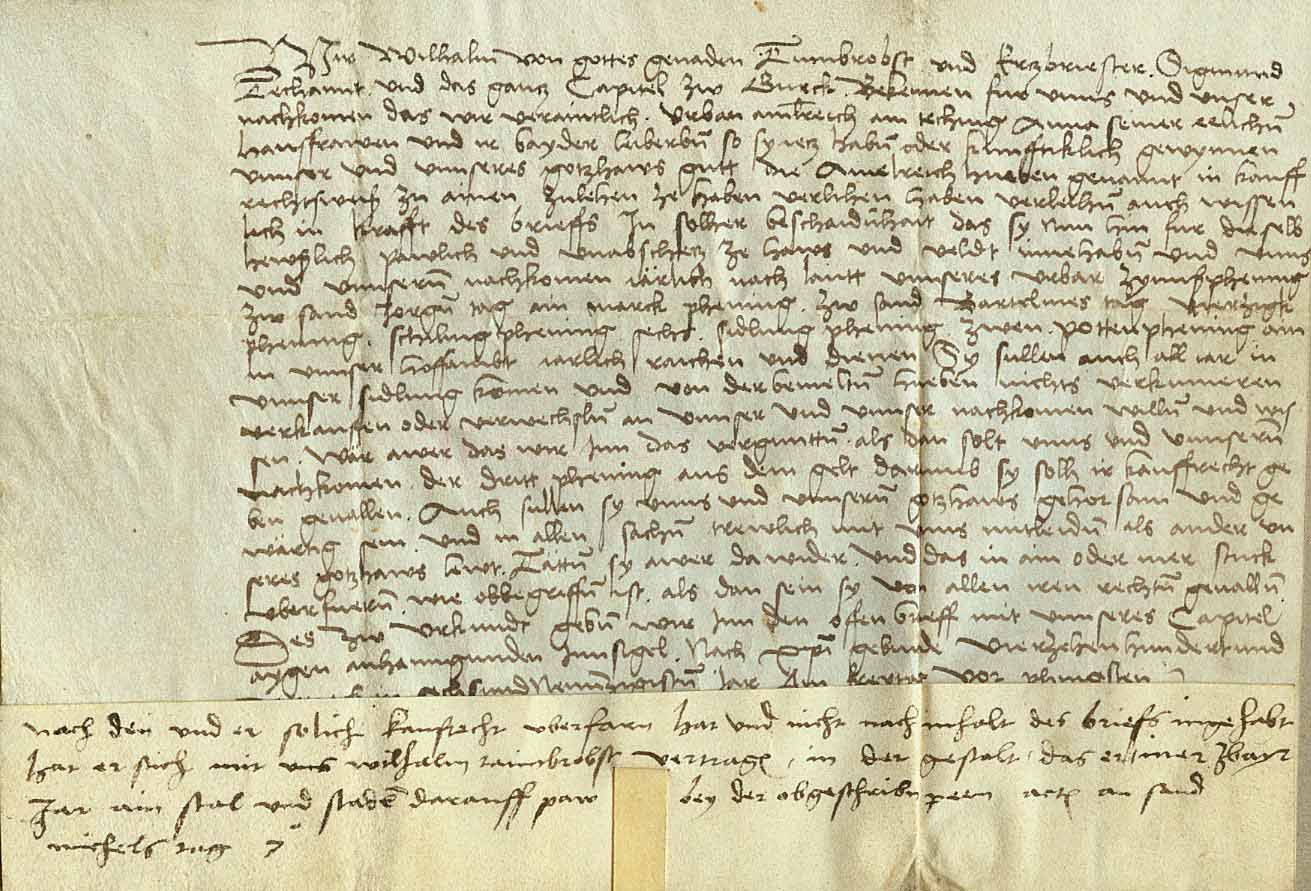 Wir Wilhalm von gottes genaden Tumbrobst und Ertzbriester. Sigmund
Techannt und das gantz Capitel zw Gurck. Bekennen fur unns und unser
nachkomen das wir veraintlich. Urban am Reich am teching Anna seiner elichn̄
hausfrawen und ir bayder leiberbn̄ so sy yetz habn̄ oder kunfftiklich gewynnen
unnser und unnseres gotzhaws gutt die Amreich hueben genannt in kauff
rechtsweis zu ainen zulehen ze haben verlihen haben verleihn̄ auch wissen
lich in krafft des brieffs In solher beschaidnhait das sy nun hin fur dieselb
hewslich pawlich und unabschetz ze haws und veldt innehabn̄ und unns
und unnsern̄ nachkomen iärlich nach lautt unnseres urbar zynnsphening
zw sand Jorgn̄ tag ain marck phening. zw sand Bartelmes tag vierzigk
phening. schiling phening sechs. sidlung phening zwen. pottenphening ain
in unnser hoffambt iarlich raichen und dienen Sy sullen auch all iar in
unnser sidlung komen und von der bemeltn̄ hueben nichts verkumeren
verkauffen oder verwechsln̄ an unnser und unnser nachkomen willn̄ und wis
sen. Wär awer das wir Inn das vergunttn̄. als dan solt unns und unnsern̄
nachkomen der dritt phening aus dem gelt darumb sy solh ir kauffrecht ge
ben gevallen. Auch sullen sy unns und unnserm̄ gotzhaws gehorsam und ge
wärtig sein und in allen sachn̄ trewlich mit unns mitleidn̄ als ander un
seres gotzhaws lewt. Tättn̄ sy awer dawider. und das in ain oder mer stuck
uberfuern̄. wie obbegriffn̄ ist. als dan sein sy von allen iren rechtn̄ gevalln̄.
Des zw urkundt gebn̄ wir Inn den offen brieff mit unnseres Capitel
aygen anhanngunden Innsigel. Nach xp̄i gebude vierzehenhundert und
sechsundNewnzigistn̄ Jar Am vor phingsten
nach den und er solich kaufrecht uberfarn hat und nicht nach inhalt des briefs ingehabt
hat er sich mit uns wilhalm tumbrobst vertragn̄, in der gestalt das er inner zbayr
Jar ain stal und stadel darauff paw bey der obgeschribn peen actn̄ an sand
michels tag